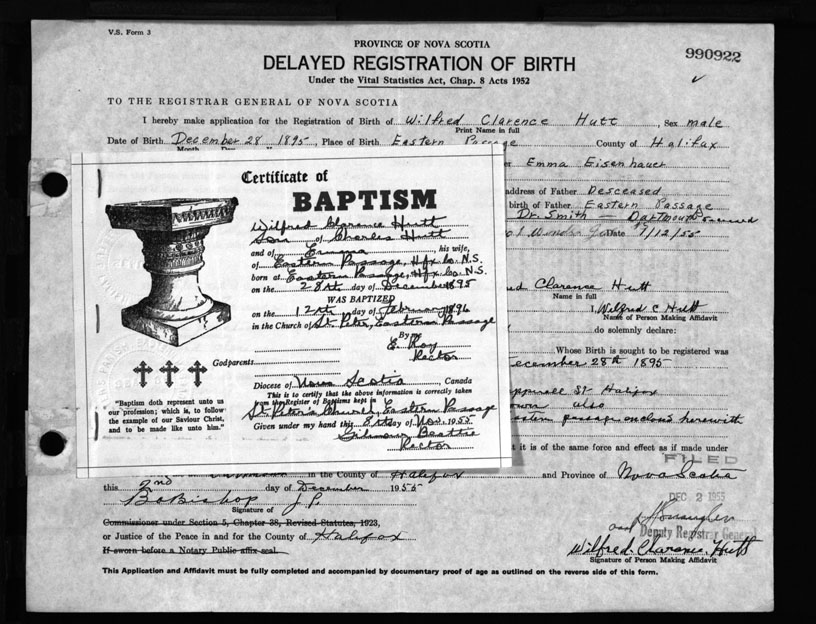 V.S. Form 3
PROVINCE OF NOVA SCOTIA
990922
DELAYED REGISTRATION OF BIRTH
Under the Vital Statistics Act, Chap. 8 Acts 1952
TO THE REGISTRAR GENERAL OF NOVA SCOTIA
I hereby make application for the Registration of Birth of Wilfred Clarence Hutt, Sex male
Print Name in full
Date of Birth December 28 1895, Place of Birth Eastern Passage County of Halifax
Emma Eisenhauer
address of Father Desceased
birth of Father Eastern Passage
Dr. Smith — Dartmouth
Date 1/12/55
Clarence Hutt
Name in full
I, Wilfred C Hutt
Name of Person Making Affidavit
do solemnly declare:
Whose Birth is sought to be registered was
December 28th 1895
St Halifax
also
passage enclosed herewith
it is of the same force and effect as if made under
Certificate of
BAPTISM
Wilfred Clarence Hutt
Son of Charles Hutt
and of Emma his wife,
of Eastern Passage, Hfx. Co. N.S.
born at Eastern Passage, Hfx. Co. N.S.
on the 28th day of December 1895
WAS BAPTIZED
on the 12th day of February 1896
in the Church of St. Peter, Eastern Passage
By
E. Roy
Rector
Godparents
Diocese of Nova Scotia Canada
This is to certify that the above information is correctly taken
from the Register of Baptisms kept in
St. Peter's Church, Eastern Passage
Given under my hand this 8th day of Nov. 1955
Gilmour Beattie
Rector
"Baptism doth represent unto us
our profession; which is, to follow
the example of our Saviour Christ,
and to be made like unto him."
in the County of Halifax and Province of Nova Scotia
FILED
this 2nd day of December 1955
DEC 2 1955
Bishop J.P.
Signature of
Deputy Registrar General
Commissioner under Section 5, Chapter 38, Revised Statutes, 1923,
or Justice of the Peace in and for the County of Halifax
If sworn before a Notary Public affix seal.
Wilfred Clarence Hutt
Signature of Person Making Affidavit
This Application and Affidavit must be fully completed and accompanied by documentary proof of age as outlined on the reverse side of this form.